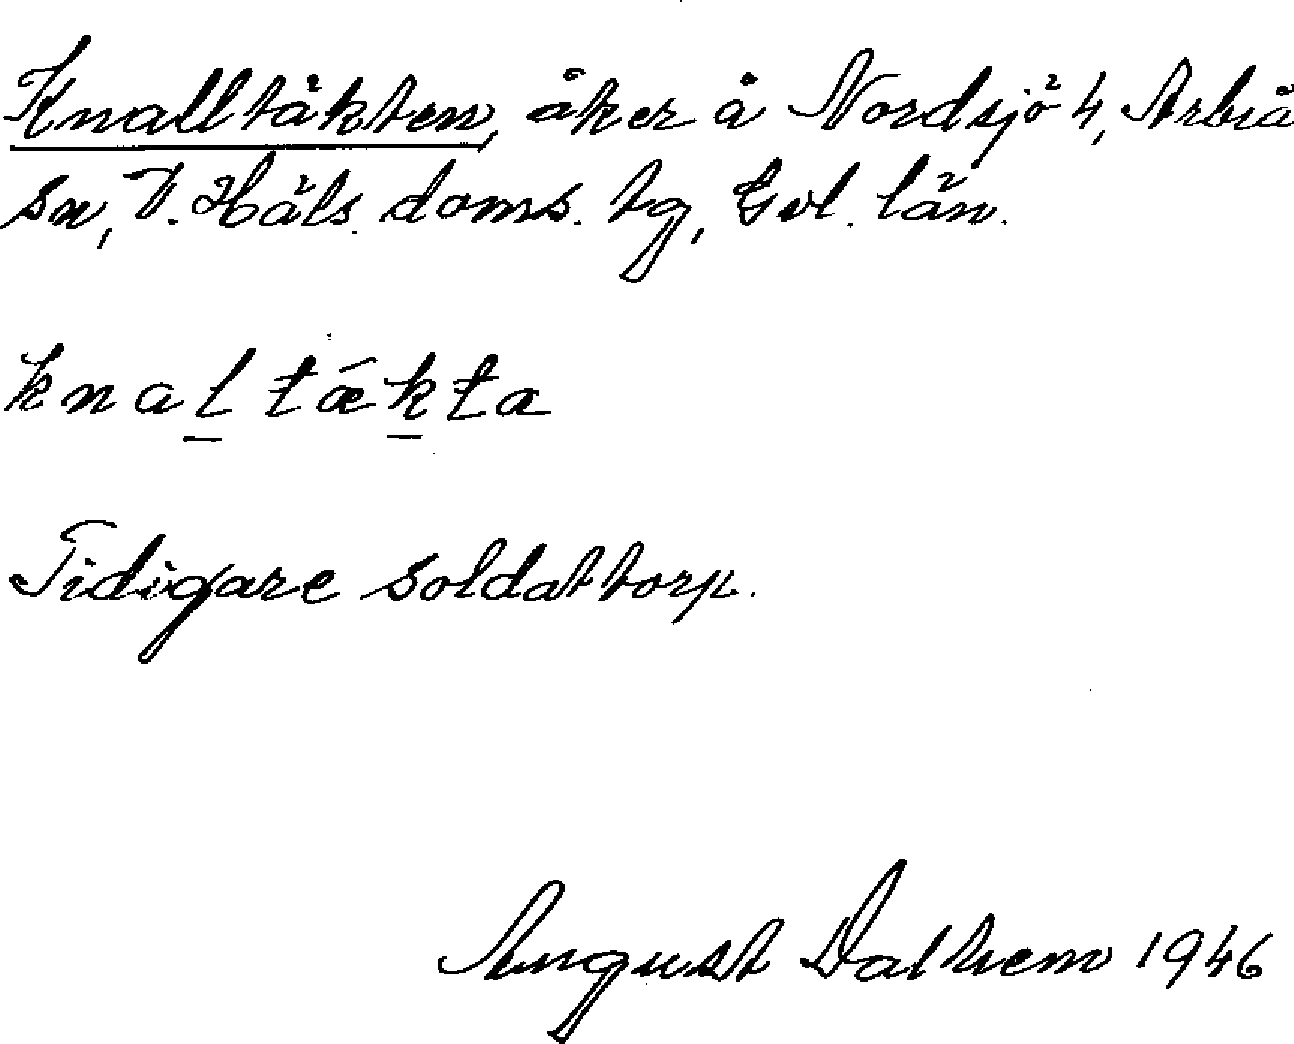 Knalltäkten, åker å Nordsjö 4, Arbrå
sn, V. Häls. doms. tg, Gvl. län.
knal tǽkta
Tidigare soldattorp.
August Dalhem 1946